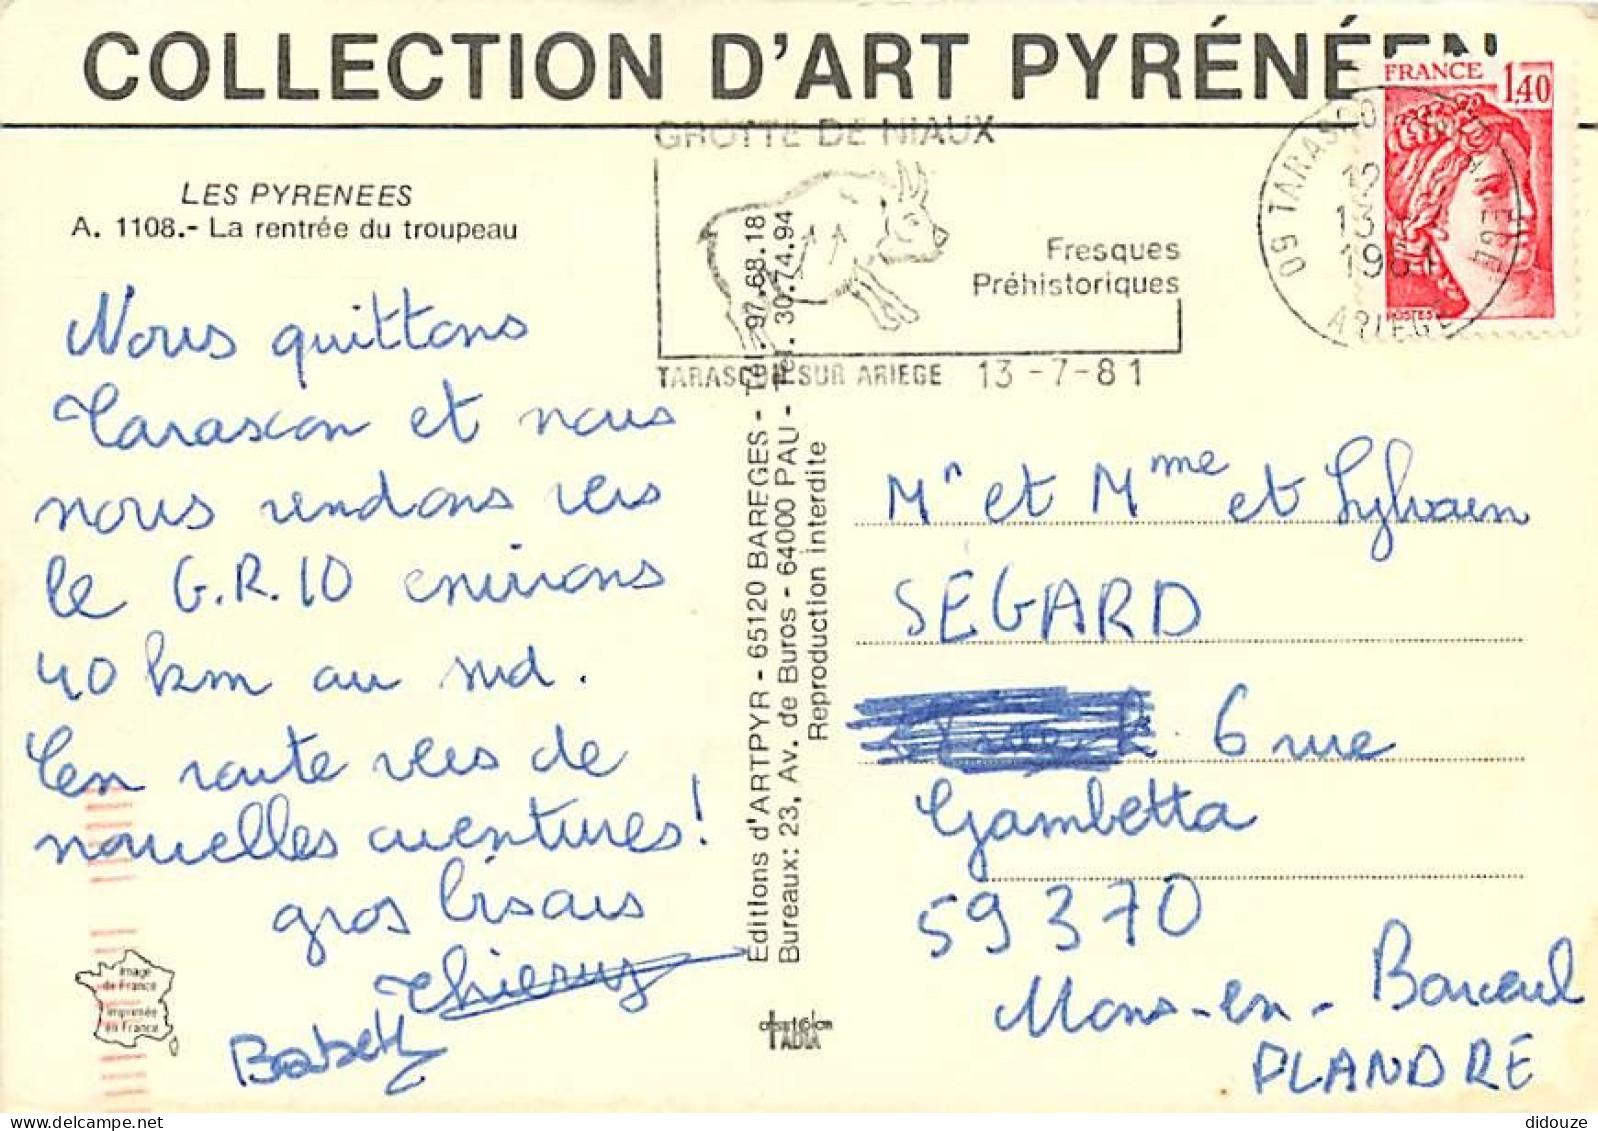 COLLECTION D'ART PYRÉNÉEN
FRANCE
1,40
POSTES
GROTTE DE NIAUX
Fresques
Préhistoriques
TARASCON SUR ARIEGE 13-7-81
09 TARASCO
12
13
1981
ARIEGE
LES PYRENEES
A. 1108.- La rentrée du troupeau
Nous quittons
Tarascon et nous
nous rendons vers
le G.R.10 environs
40 km au sud.
En route vers de
nouvelles aventures!
gros bisous
Thierry
Babeth
Image
de France
Imprimée
en France
Editions d'ARTPYR - 65120 BAREGES - Tél. 97.68.18
Bureaux: 23, Av. de Buros - 64000 PAU - Tél. 30.74.94
Reproduction interdite
Mr et Mme et Sylvain
SEGARD
6 rue
Gambetta
59370
Mons-en-Baroeul
FLANDRE
didouze @ delcampe.net